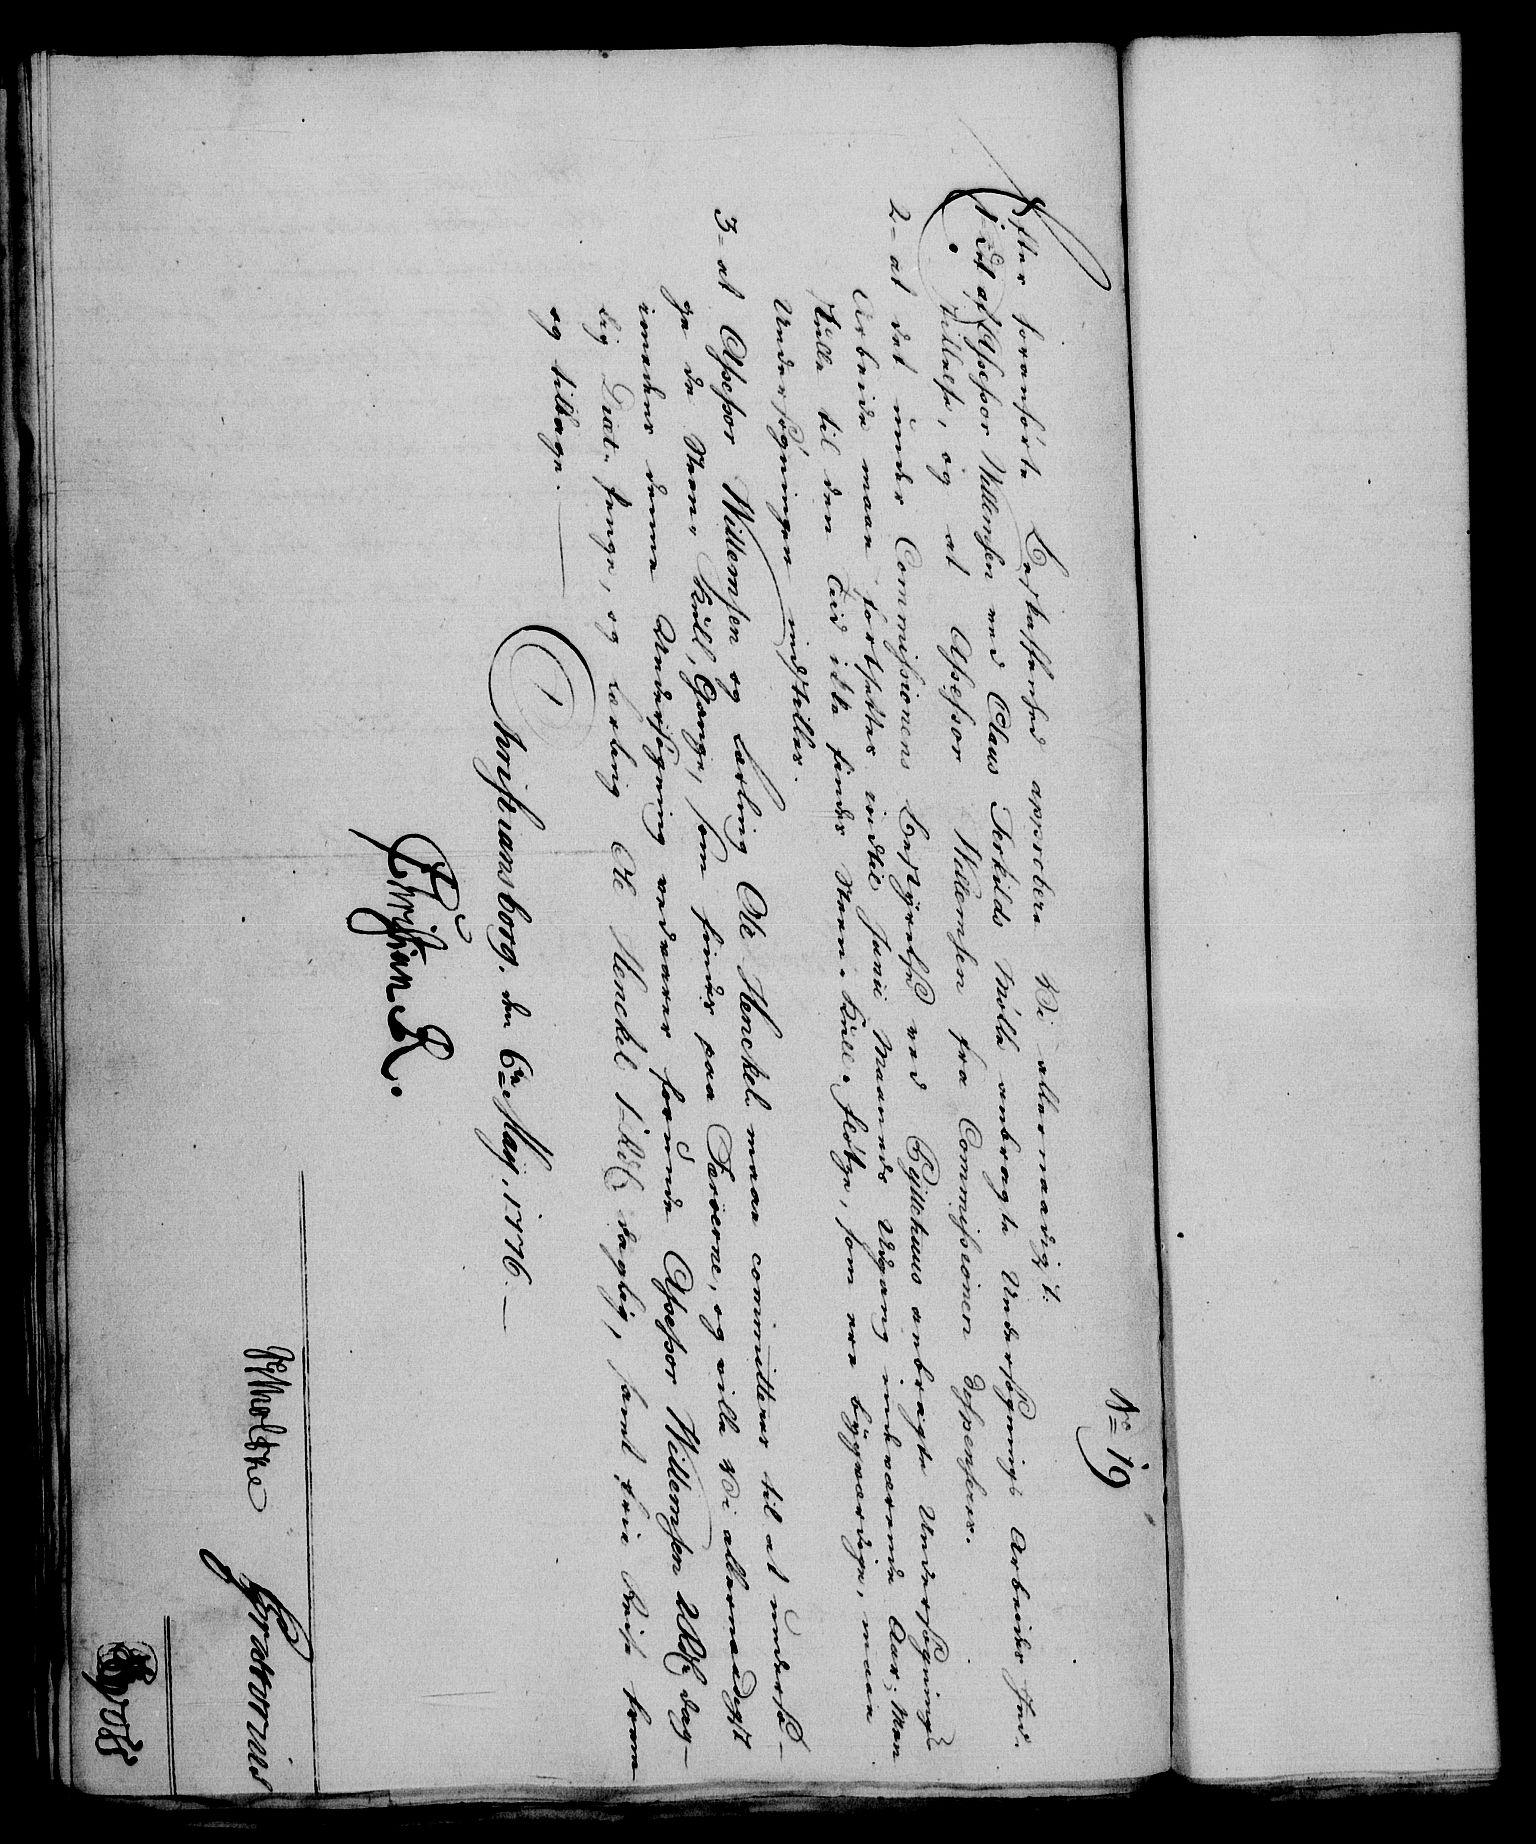 No 19
Efter foranförte Beskaffenhed approbere Vi allernaadigst:
1- at det af Assessor Willemsen ved Claus Terkilds Mölle anbragte Undersögnings Arbeide ind-
stilles, og at Assessor Willemsen fra Commissionen dispenseres.
2- at det under Commissionens Bestyrelse ved Bÿllehuus anbragte Undersögnings
Arbeide maae fortsættes indtil Junii Maaneds Udgang indeværende Aar; Men
skulle til den Tiid ikke findes Steen-Kull-Flötze, som ere bÿgværdige, maae
Undersögningen indstilles.
3- at Assessor Willemsen og Lærling Ole Henckel maae committeres til at undersö-
ge de Steen-Kull-Gange, som findes paa Færöerne, og ville Vi allernaadigst
imedens denne Undersögning vedvarer forunde Assessor Willemsen 2 Rdl dag-
lig Diæt-Penge, og Lærling Ole Henckel 1 Rdl daglig, samt frie Reise frem
og tilbage.
Christiansborg, den 6te Maj, 1776.
Christian R.